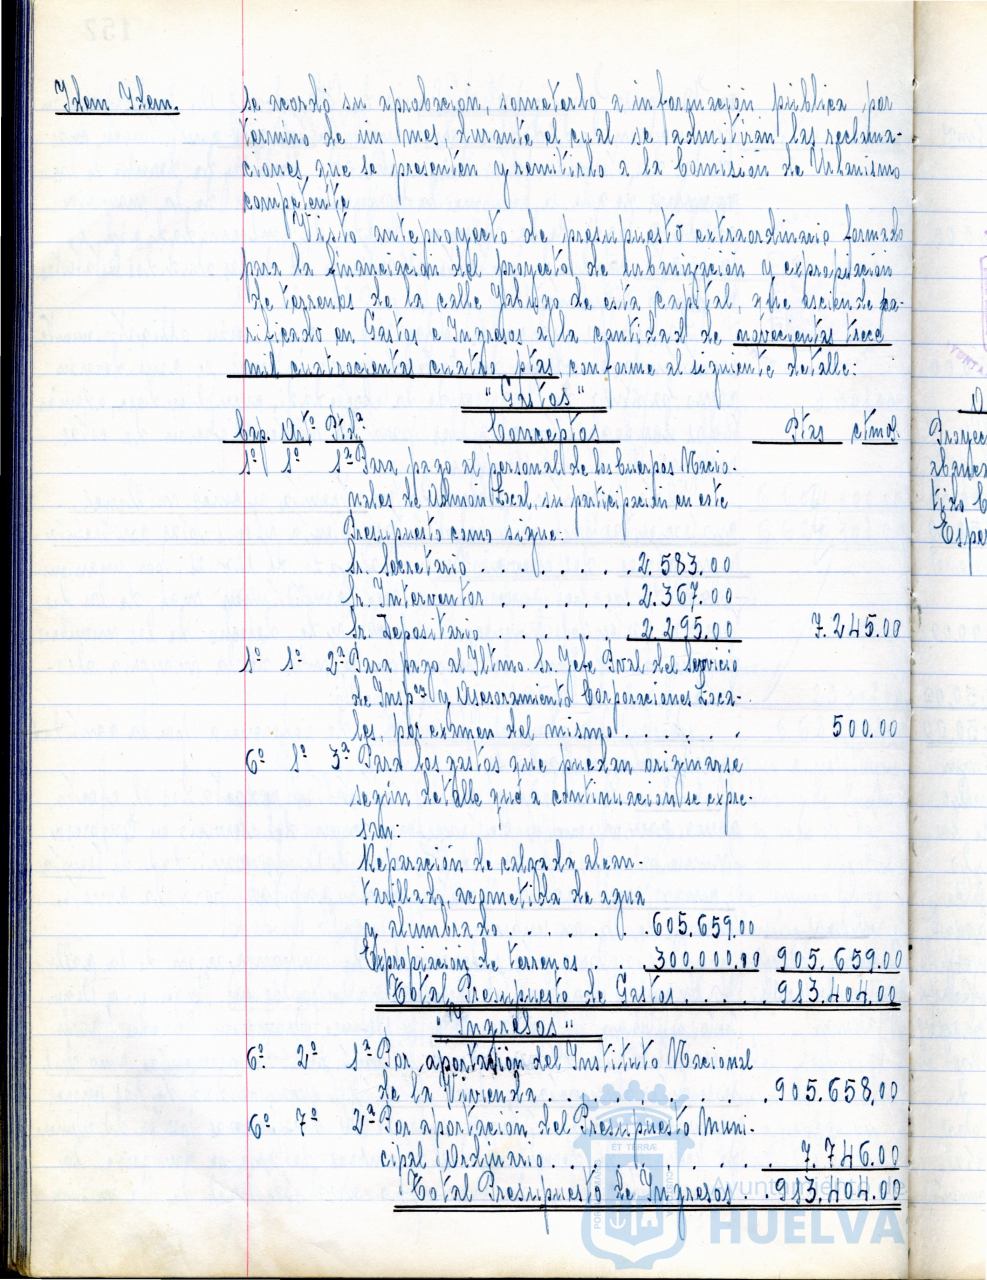 Idem Idem.
se acordó su aprobación, someterlo a información pública por
termino de un mes, durante el cual se admitirán las reclama-
ciones que se presenten y remitirlo a la Comisión de Urbanismo
competente.
Visto anteproyecto de presupuesto extraordinario formado
para la financiación del proyecto de urbanización y expropiación
de terrenos de la calle Jabugo de esta capital, que asciende pa-
rificado en Gastos e Ingresos a la cantidad de novecientas trece
mil cuatrocientas cuatro ptas, conforme al siguiente detalle:
"Gastos"
Cap. Artº Ptdª Conceptos Ptas ctmos.
1º 1º 1ª Para pago al personal de los Cuerpos Nacio-
nales de Admon Local, su participación en este
Presupuesto como sigue:
Sr. Secretario . . . . . . . 2.583.00
Sr. Interventor . . . . . . . 2.367.00
Sr. Depositario . . . . . . . 2.295.00 7.245.00
1º 1º 2ª Para pago al Iltmo. Sr. Jefe Pval del Servicio
de Inspºⁿ y Asesoramiento Corporaciones Loca-
les, por examen del mismo . . . . . . 500.00
6º 1º 3ª Para los gastos que puedan originarse
según detalle que a continuación se expre-
san:
Reparación de calzada, alcan-
tarillado, acometida de agua
y alumbrado . . . . . . 605.659.00
Expropiación de terrenos . . . 300.000.00 905.659.00
Total Presupuesto de Gastos . . . . 913.404.00
"Ingresos"
6º 2º 1ª Por aportación del Instituto Nacional
de la Vivienda . . . . . . . . . 905.658,00
6º 7º 2ª Por aportación del Presupuesto Muni-
cipal Ordinario . . . . . . . . . 7.746.00
Total Presupuesto de Ingresos . . 913.404.00
ET TERRÆ
Ayuntamiento de
HUELVA